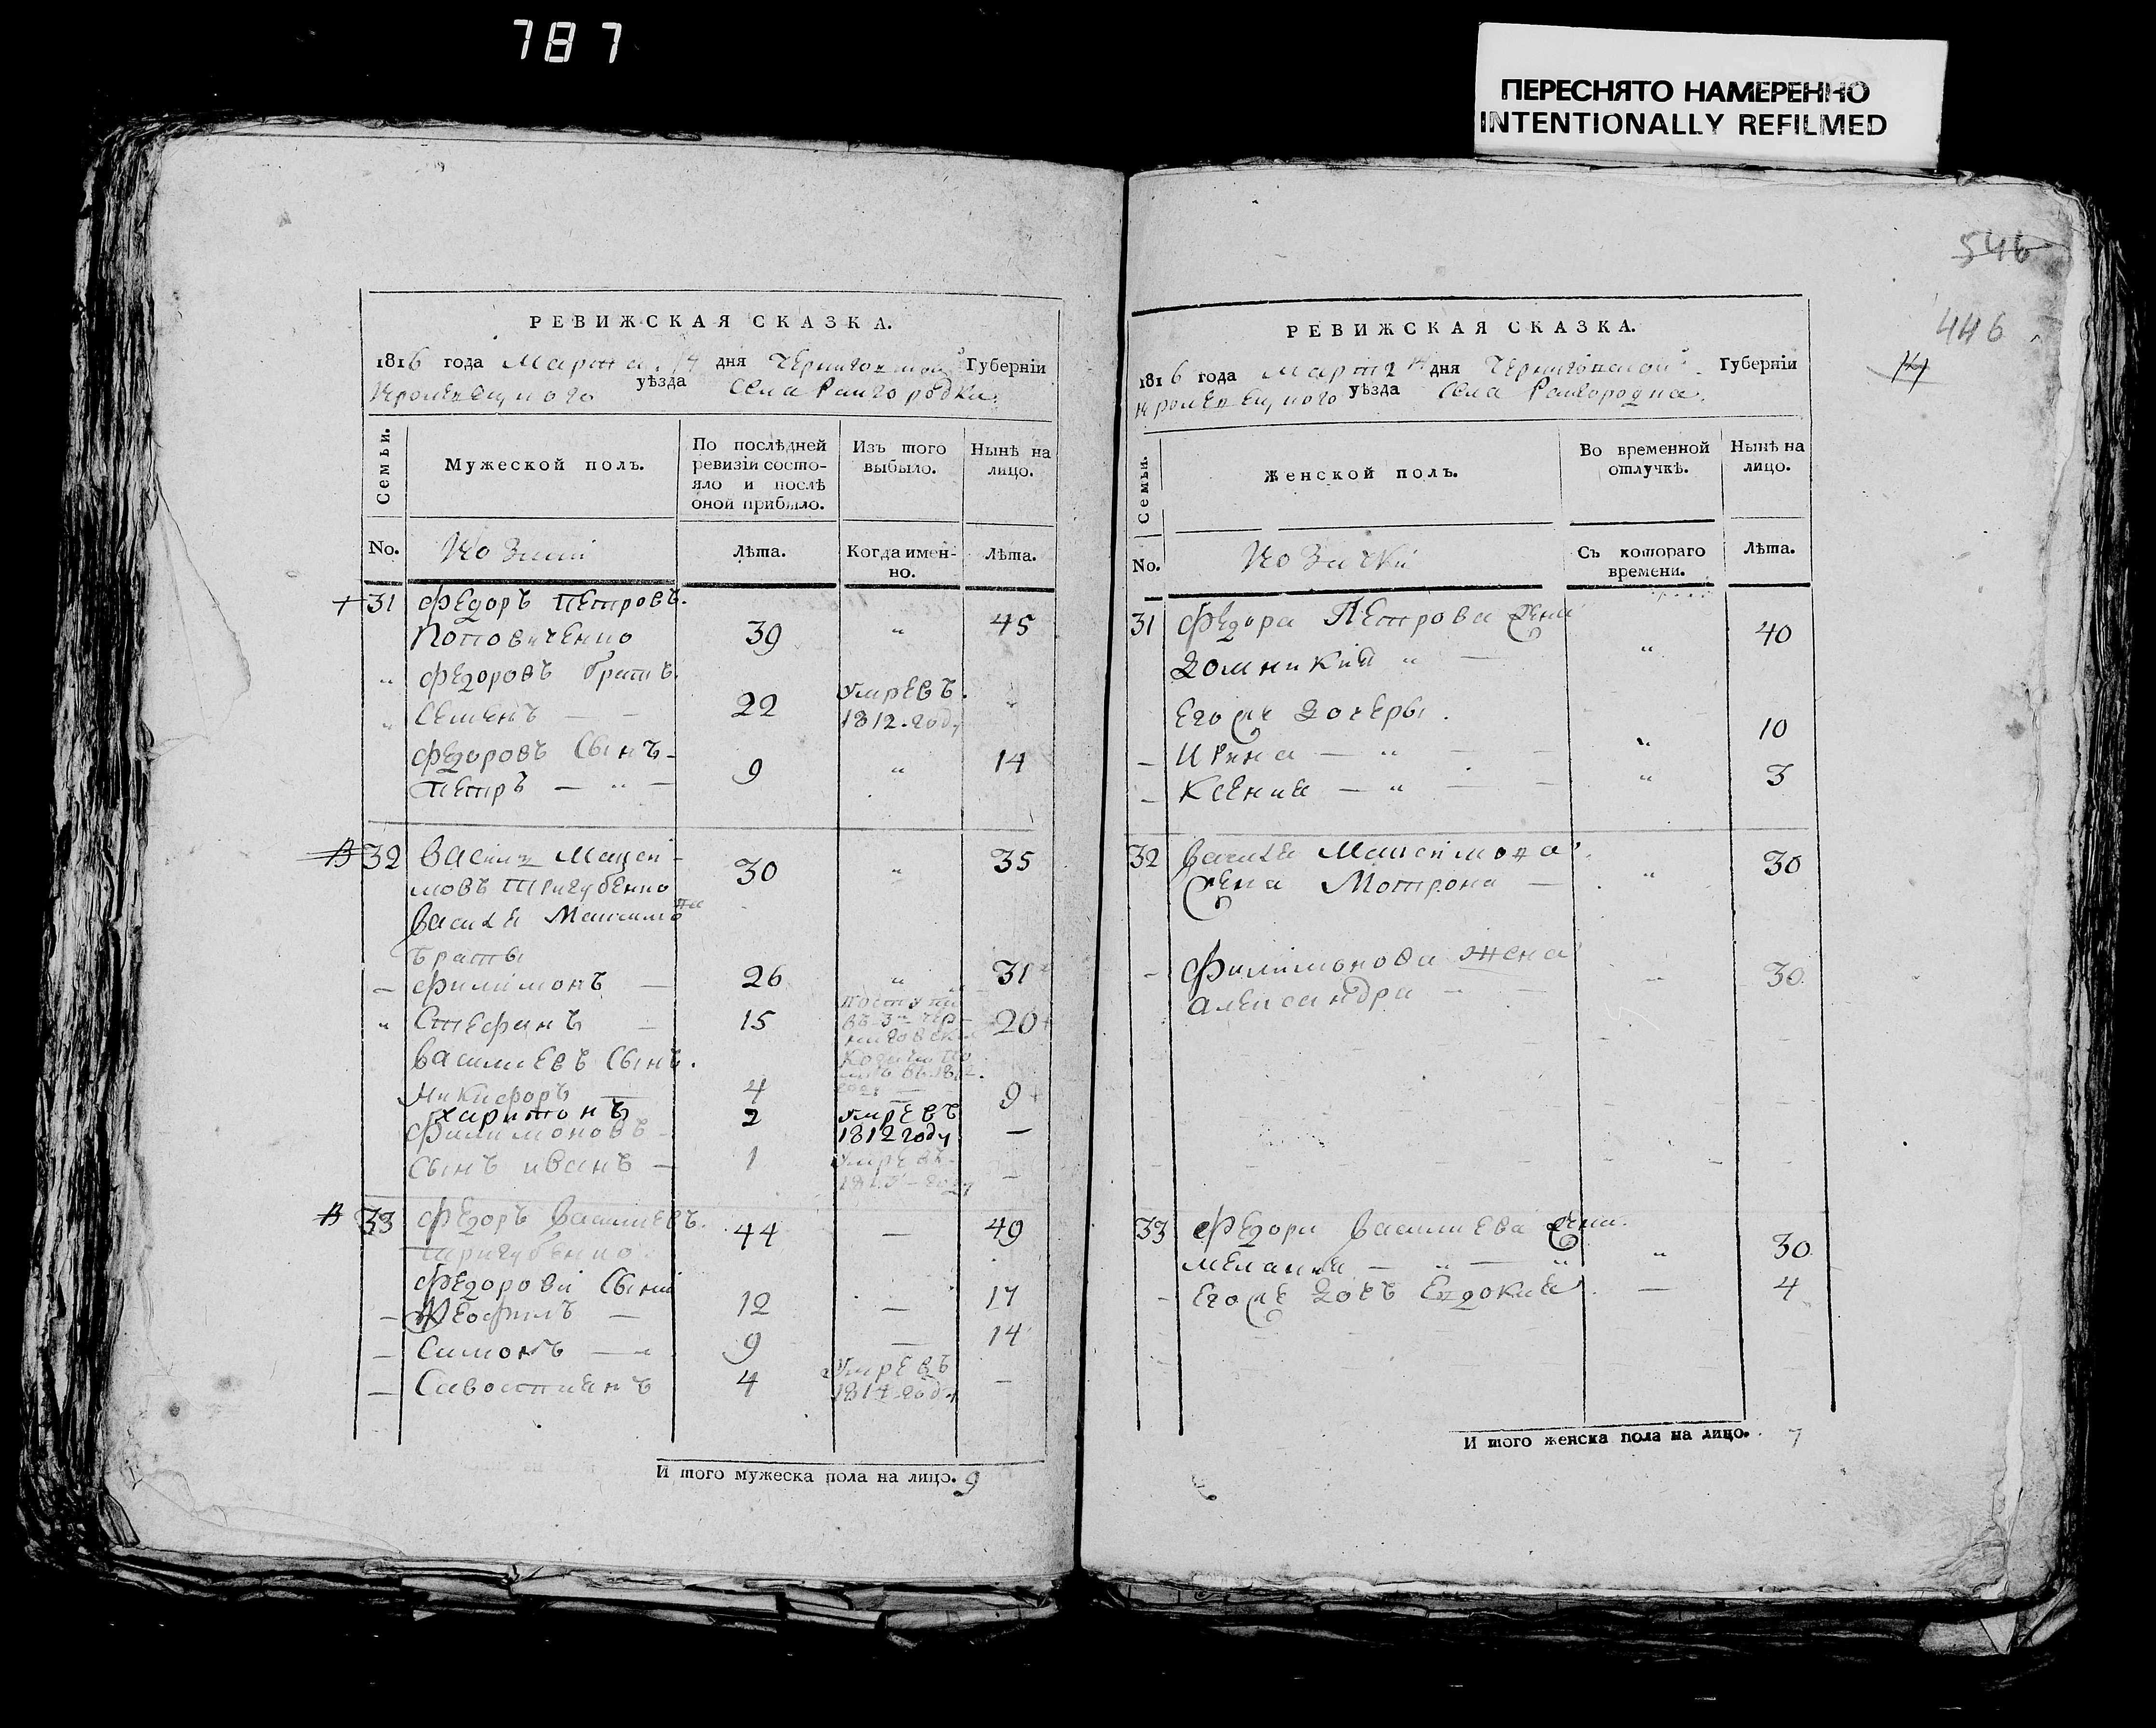 787
ПЕРЕСНЯТО НАМЕРЕННО
INTENTIONALLY REFILMED
РЕВИЖСКАЯ СКАЗКА.
1816 года Марта 14 дня Черниговской Губернїи
Кролевецкого уѣзда села Райгородки.
Семьи.
Мужеской полъ.
По послѣдней ревизїи состо-
яло и послѣ
оной прибыло.
Изъ того
выбыло.
Нынѣ на
лицо.
No.
Козаки
Лѣта.
Когда имен-
но.
Лѣта.
31 Федоръ Петровъ.
Поповиченко 39 " 45
" Федоровъ братъ
" Семенъ — — 22 Умревъ. 1812. году "
Федоровъ Сынъ
Петръ — " — 9 " 14
В 32 Василь Макси-
мовъ Тригубенко 30 " 35
Василя Максимова
братьи
— Филимонъ — 26 " 31
" Стефанъ — 15 20
въ 3й чер-
ниговски
Василиевъ Сынъ.
Никифоръ — 4 — 9
Харитонъ 2 Умревъ 1812 году —
Филимоновъ
Сынъ иванъ — 1 Умревъ —
В 33 Федоръ Василиевъ. 44 — 49
Тригубенко
Федорови Сыни
— Феофилъ — 12 — 17
— Симонъ — 9 — 14
— Савостиянъ 4 Умревъ 1814 году —
И того мужеска пола на лицо. 9
546
446
РЕВИЖСКАЯ СКАЗКА.
1816 года Марта 14 дня Черниговской Губернїи
Кролевецкого уѣзда села Райгородка.
Семьи.
Женской полъ.
Во временной
отлучкѣ.
Нынѣ на
лицо.
No.
Козачки
Съ котораго
времени.
Лѣта.
31 Федора Петрова жена
Домникия " — " 40
Его же дочеры.
— Ирина — " — — " 10
— Ксения — " — — " 3
32 Василя Максимова
жена Мотрона — " 30
— Филимонова жена
александра — — — 30
33 Федора Василиева жена
мелания — " — " " 30
— Его же дочь Евдокия — 4
И того женска пола на лицо. 7